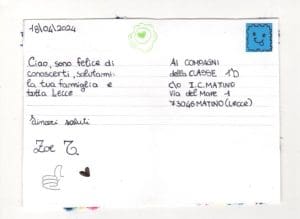 18/04/2024
Ciao, sono felice di
conoscerti, salutami
la tua famiglia e
tutta Lecce
Sinceri saluti
Zoe T
Ai COMPAGNI
della CLASSE 1°D
c/o I.C. MATINO
Via del Mare 1
73046 MATINO (Lecce)